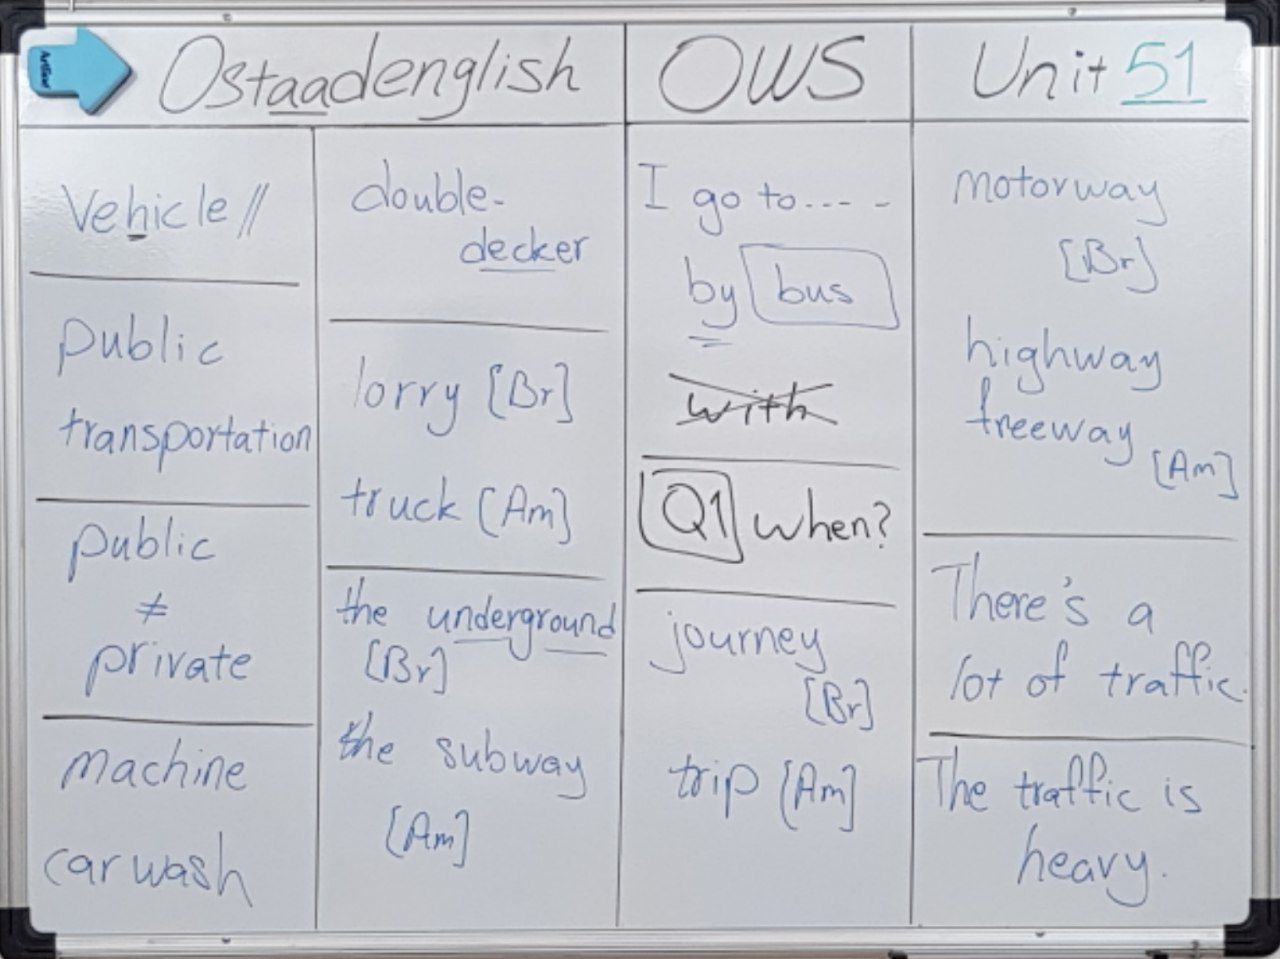 Ostaadenglish
OWS
Unit 51
Vehicle //
public
transportation
public
≠
private
machine
car wash
double-
decker
lorry [Br]
truck [Am]
the underground
[Br]
the subway
[Am]
I go to.....
by bus
with
Q1 when?
journey
[Br]
trip [Am]
motorway
[Br]
highway
freeway
[Am]
There's a
lot of traffic.
The traffic is
heavy.